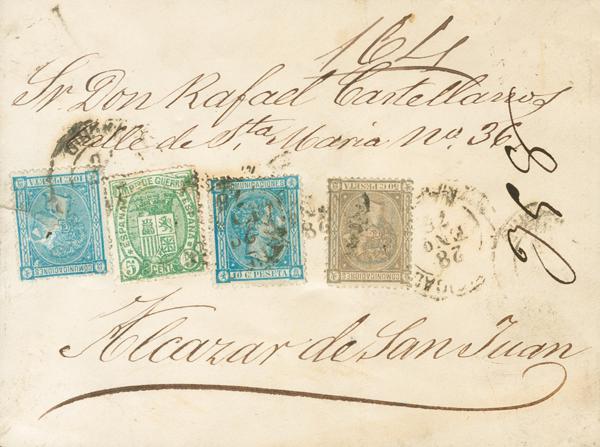 164
Sr Don Rafael Castellanos
Calle de Sta Maria No. 36
958
COMUNICACIONES
10 CS PESETA
IMPTO DE GUERRA
ESPAÑA
5 CENT
COMUNICACIONES
10 CS PESETA
COMUNICACIONES
50 CS PESETA
28
Alcazar de San Juan